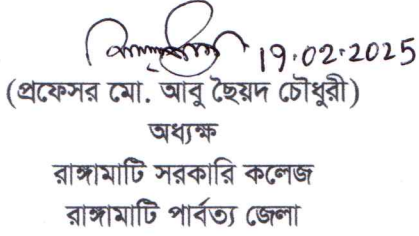 19.02.2025
(প্রফেসর মো. আবু ছৈয়দ চৌধুরী)
অধ্যক্ষ
রাঙ্গামাটি সরকারি কলেজ
রাঙ্গামাটি পার্বত্য জেলা